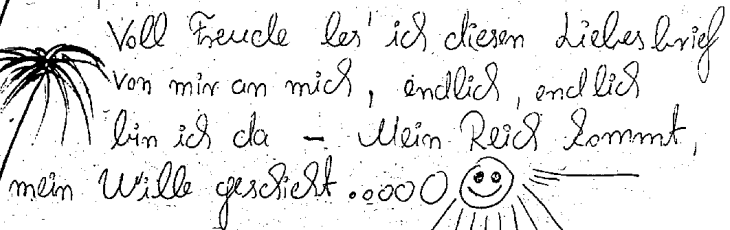 Voll Freude les' ich diesen Liebesbrief
von mir an mich, endlich, endlich
bin ich da – Mein Reich kommt,
mein Wille geschieht ..ooO